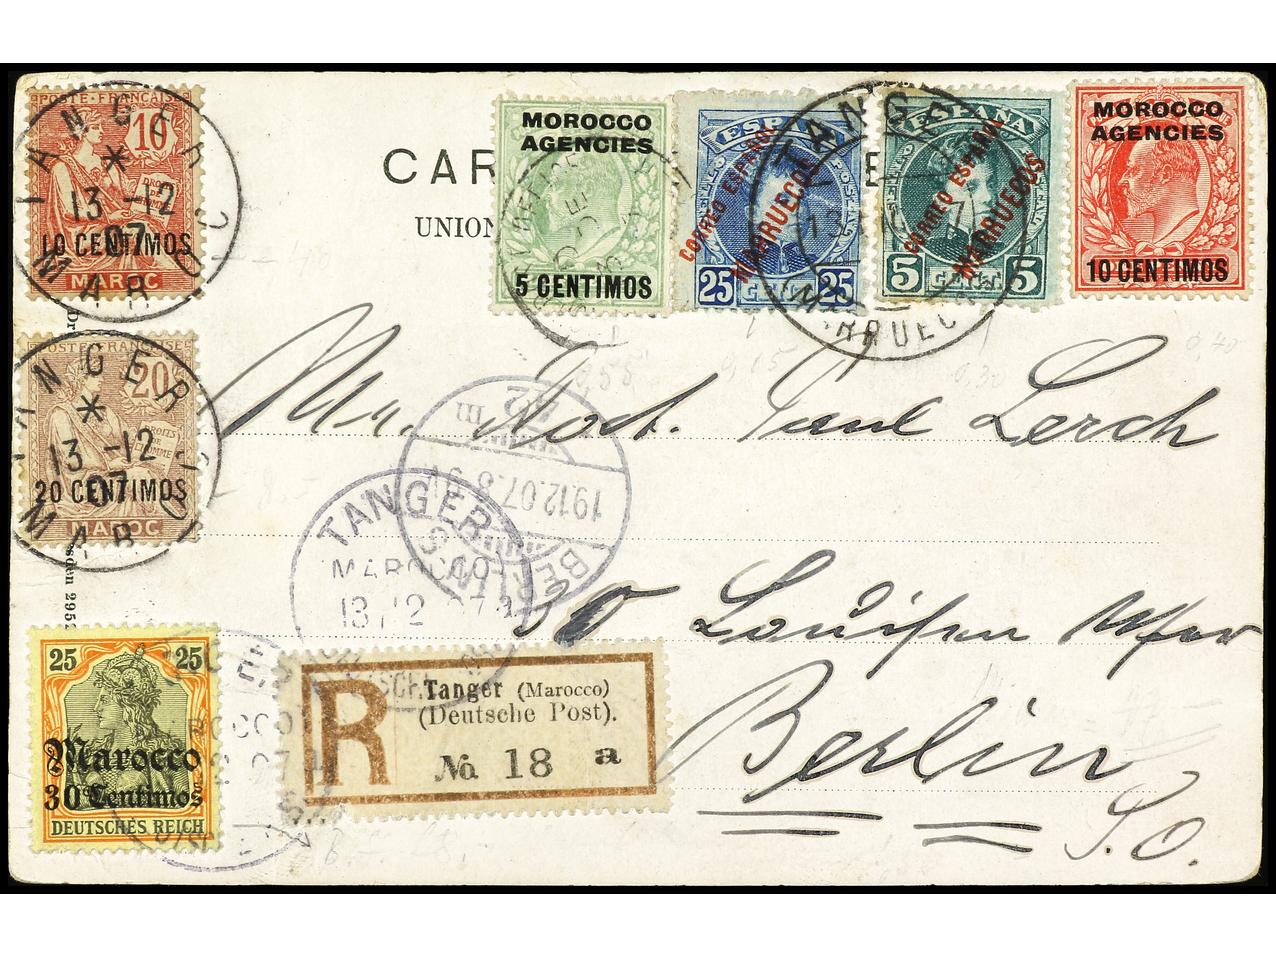 POSTE FRANÇAISE
10
10 CENTIMOS
MAROC
TANGER
*
13 -12
07
MAROC
CAR
UNION
MOROCCO
AGENCIES
5 CENTIMOS
ESPAÑA
CORREO ESPAÑOL
MARRUECOS
25 25
TANGER
MARRUECOS
ESPAÑA
CORREO ESPAÑOL
MARRUECOS
5 5
MOROCCO
AGENCIES
10 CENTIMOS
POSTE FRANÇAISE
20
DROITS
DE
20 CENTIMOS
MAROC
TANGER
*
13 -12
07
MAROC
Paul Lerch
BERLIN
19.12.07.8
TANGER
MAROCCO
13 12 07
Berlin
S.O.
25 25
Marocco
30 Centimos
DEUTSCHES REICH
R
Tanger (Marocco)
(Deutsche Post).
No. 18 a